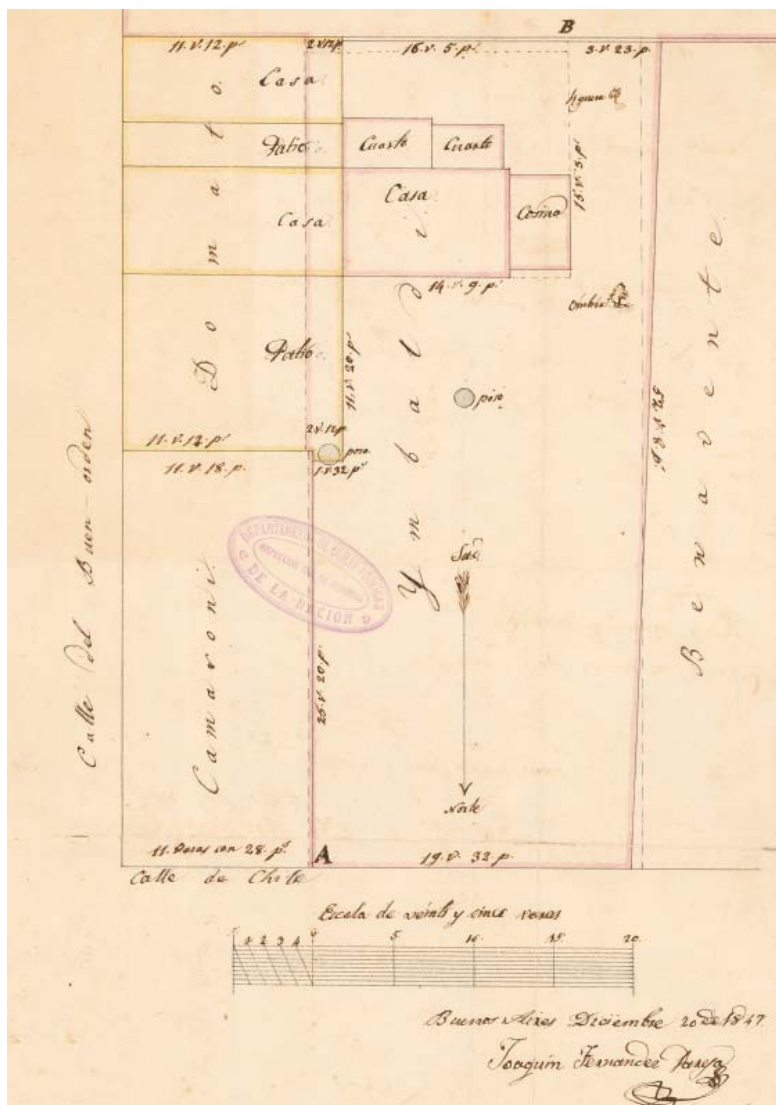 B
11. v. 12. p.s
2 v 12 p.
16. v. 5. p.s
3. v. 23. p.
Casa
Higuera
Patio
Cuarto
Cuarto
15. v. 5. p.s
Casa
Casa
Cosina
14. v. 9. p.s
Ombú
Patio
11. v. 20. p.s
poso
52. v. 8. p.s
11. v. 12. p.s
2 v. 12 p.
poso
11. v. 18. p.
1. v. 32 p.s
Domato
Ymbaldi
Benavente
Camaroni
Calle del Buen orden
DEPARTAMENTO DE OBRAS PUBLICAS
DE LA NACION
Sud
25. v. 20 p.
Norte
11. varas con 28. p.s
A
19. v. 32. p.
Calle de Chile
Escala de veinte y cinco varas
1 2 3 4 5 10. 15. 20.
Buenos Aires Diciembre 20 de 1847.
Joaquin Fernandez Pareja